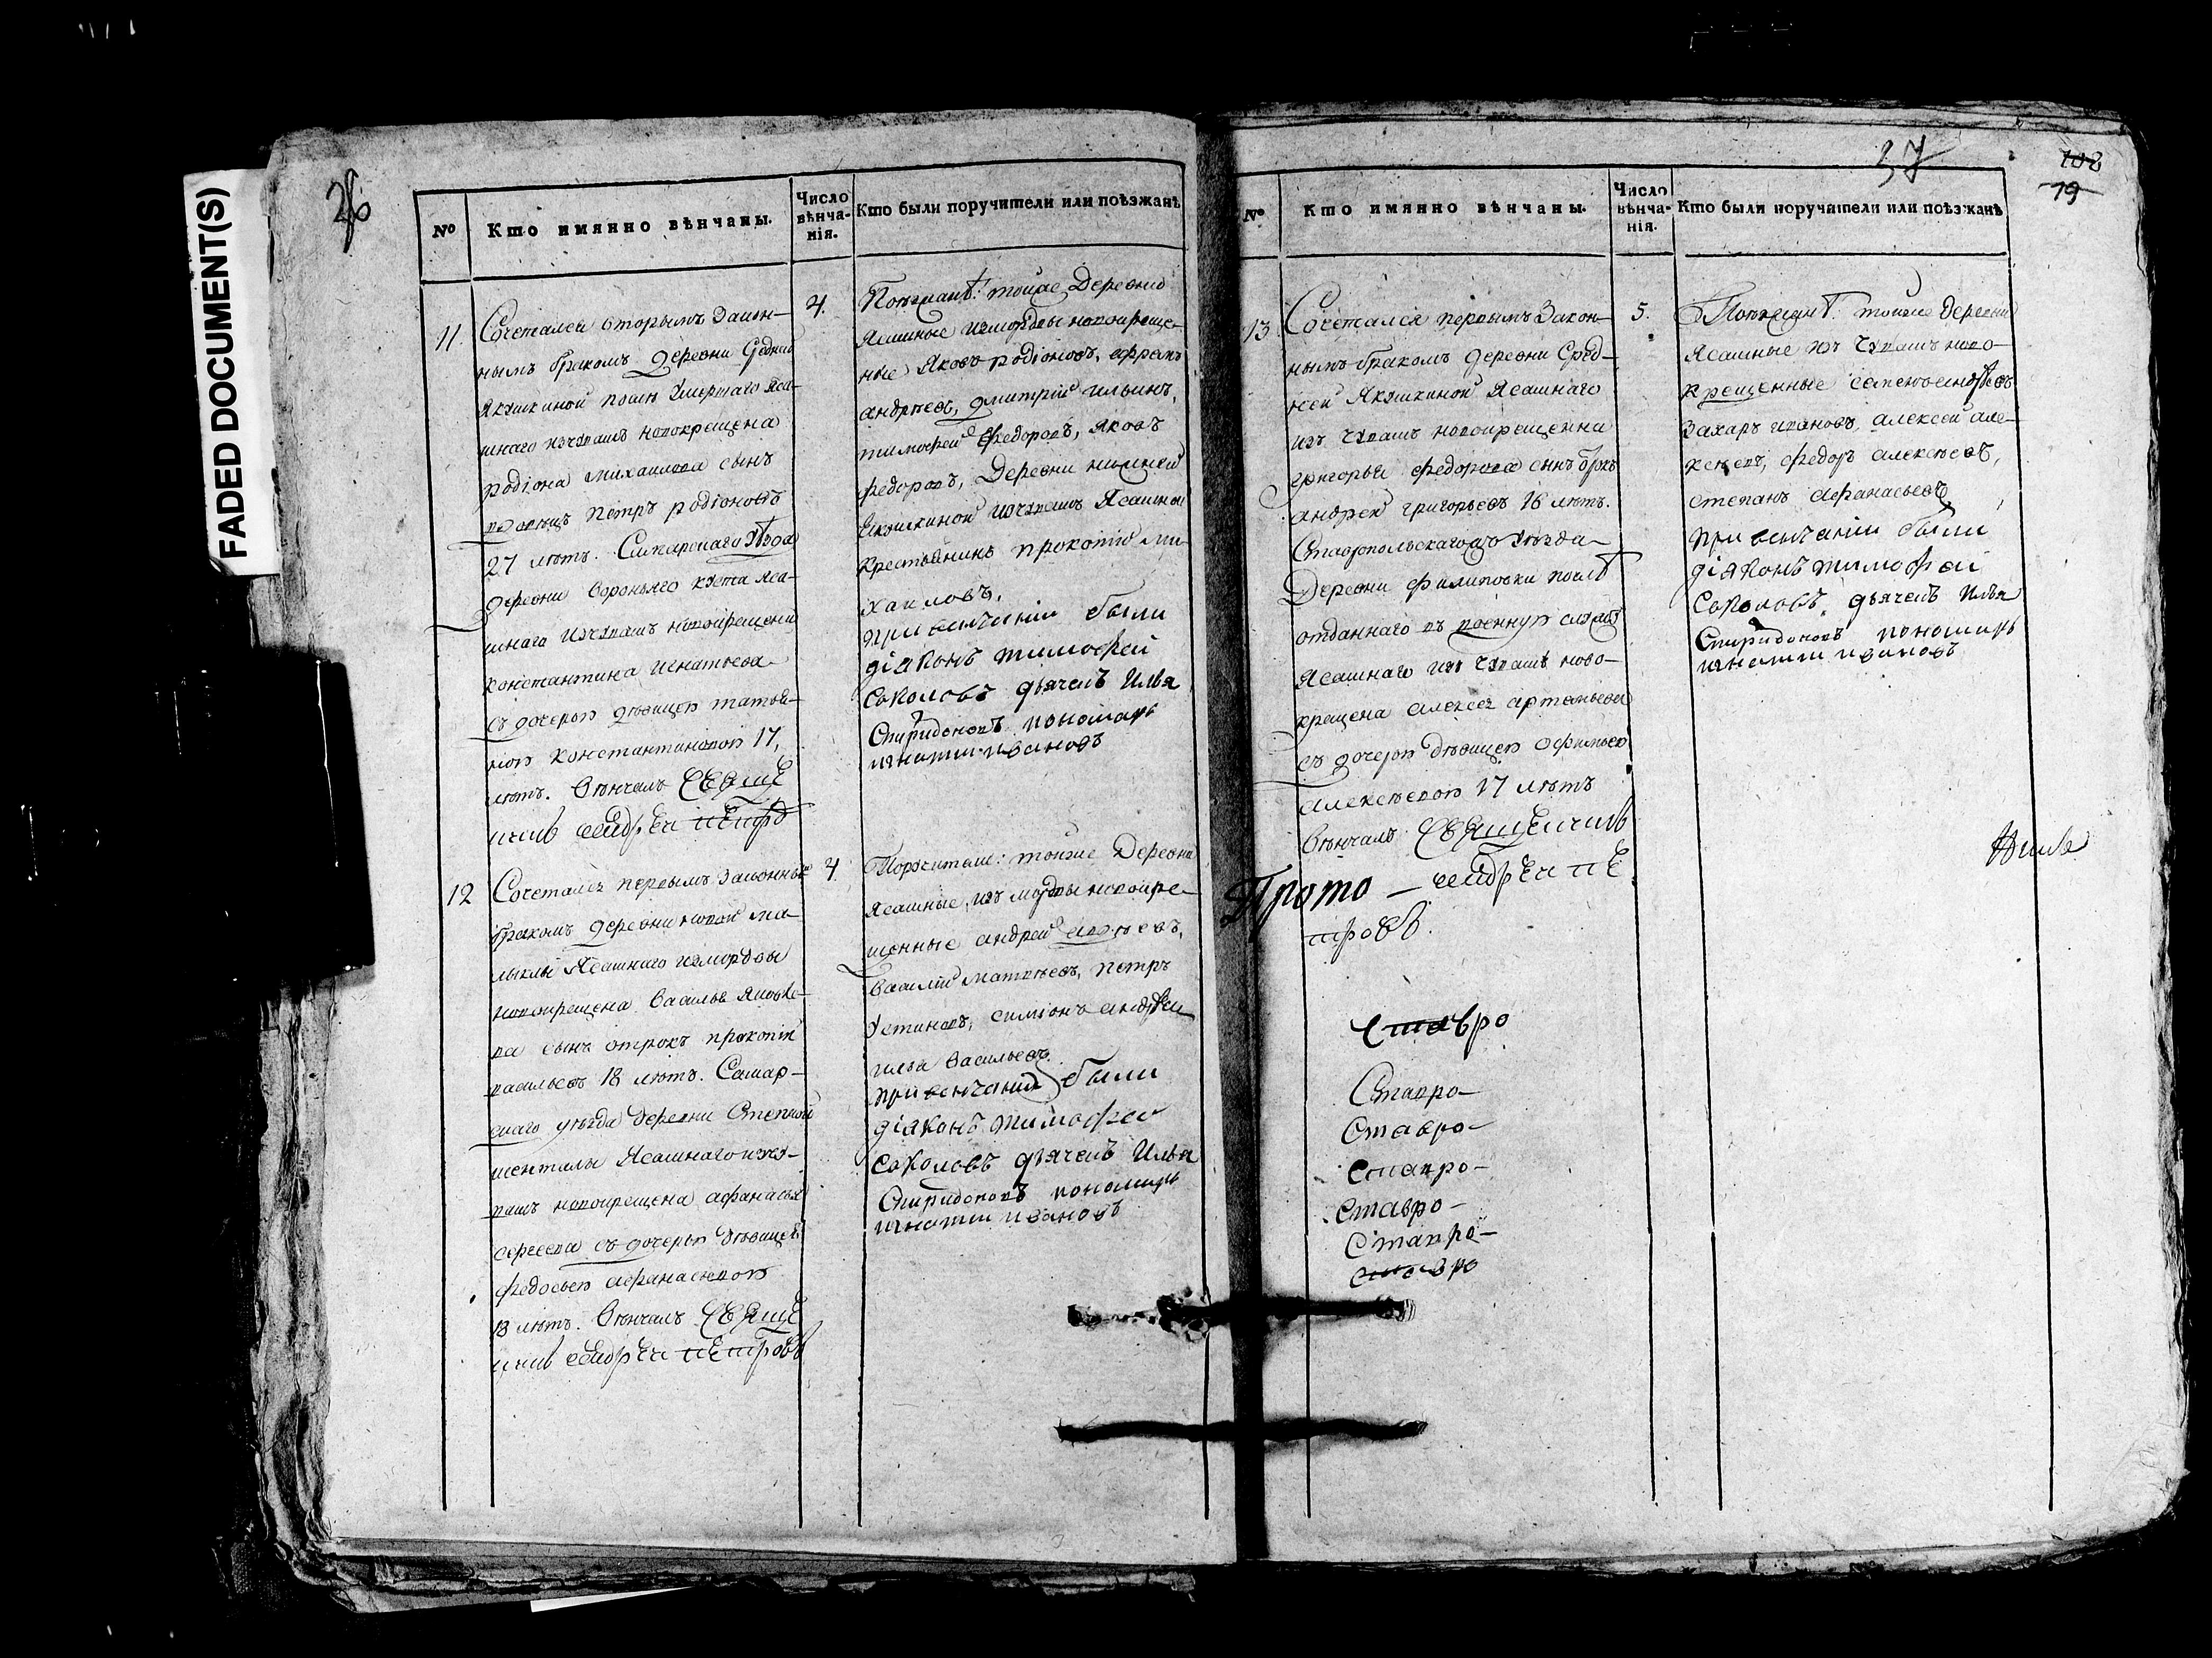 FADED DOCUMENT(S)
26
№
Кто имянно вѣнчаны.
Число вѣнча-
нія.
Кто были поручители или поѣзжанѣ
11
Сочетался вторымъ закон-
нымъ бракомъ деревни Средней
Якушкиной послѣ умершаго яса-
шнаго изчувашъ новокрещена
родіона михаилова сынъ
вдовецъ Петръ родіоновъ
27 лѣтъ. Самарскаго уѣзда
деревни Вороньяго куста яса-
шнаго изчувашъ новокрещена
константина игнатьева
съ дочерью дѣвицею татья-
ною константиновою 17,
лѣтъ. Вѣнчалъ Свяще
нникъ андрей петро
4.
Поѣзжанѣ: тойже Деревни
Ясашные измордвы новокреще-
ные Яковъ родіоновъ, ефремъ
андрѣевъ, дмитрій ильинъ,
тимофей федоровъ, яковъ
федоровъ, Деревни нижней
Якушкиной изчувашъ Ясашной
крестьянинъ прокопій ми-
хаиловъ.
при венчаніи были
діяконъ тимофей
Соколовъ дьячекъ Илья
Спиридоновъ пономарь
игнатии ивановъ
12
Сочетался первымъ законнымъ
бракомъ деревни новой ма-
лыклы Ясашнаго измордвы
новокрещена Василья Яковле-
ва сынъ отрокъ прокопій
васильевъ 18 лѣтъ. Самар-
скаго уѣзда деревни Степной
шенталы Ясашнаго изчу-
вашъ новокрещена афанасья
сергеева съ дочерью дѣвицею
федосьею афанасьевою
18 лѣтъ. Вѣнчалъ Свяще
нникъ андрей петровъ
4
Поручители: тойже Деревни
Ясашные, изъ мордвы новокре-
щенные андрей
Василій матвѣевъ, Петръ
Устиновъ, симіонъ андрѣи
илья Васильевъ.
при венчаніи были
діяконъ тимофеи
Соколовъ дьячекъ Илья
Спиридоновъ пономарь
игнатии ивановъ
37
102
19
№
Кто имянно вѣнчаны.
Число
вѣнча-
нія.
Кто были поручители или поѣзжанѣ
13
Сочетался первымъ закон-
нымъ бракомъ деревни Сред-
ней Якушкиной Ясашнаго
изъ чувашъ новокрещенна
григорья федорова сынъ отрокъ
андрей григорьевъ 18 лѣтъ.
Ставропольскагожъ уѣзда
Деревни филиповки послѣ
отданнаго въ военную службу
Ясашнаго изъ чувашъ ново-
крещена алексея артемьева
съ дочерью дѣвицею офимьею
алексѣевою 17 лѣтъ
Вѣнчалъ Священникъ
андрей пе
тровъ.
Прото -
5.
Поѣзжанѣ: тойже деревни
Ясашные изъ чувашъ ново-
крещенные семенъ андреевъ
Захаръ ивановъ, алексей але-
ксѣевъ, федоръ алексѣевъ,
степанъ афанасьевъ
при венчаніи были
діяконъ тимофеи
Соколовъ. дьячекъ Илья
Спиридоновъ пономарь
игнатии ивановъ
Ставро
Ставро-
Ставро-
Ставро-
Ставро-
Ставро-
Ставро